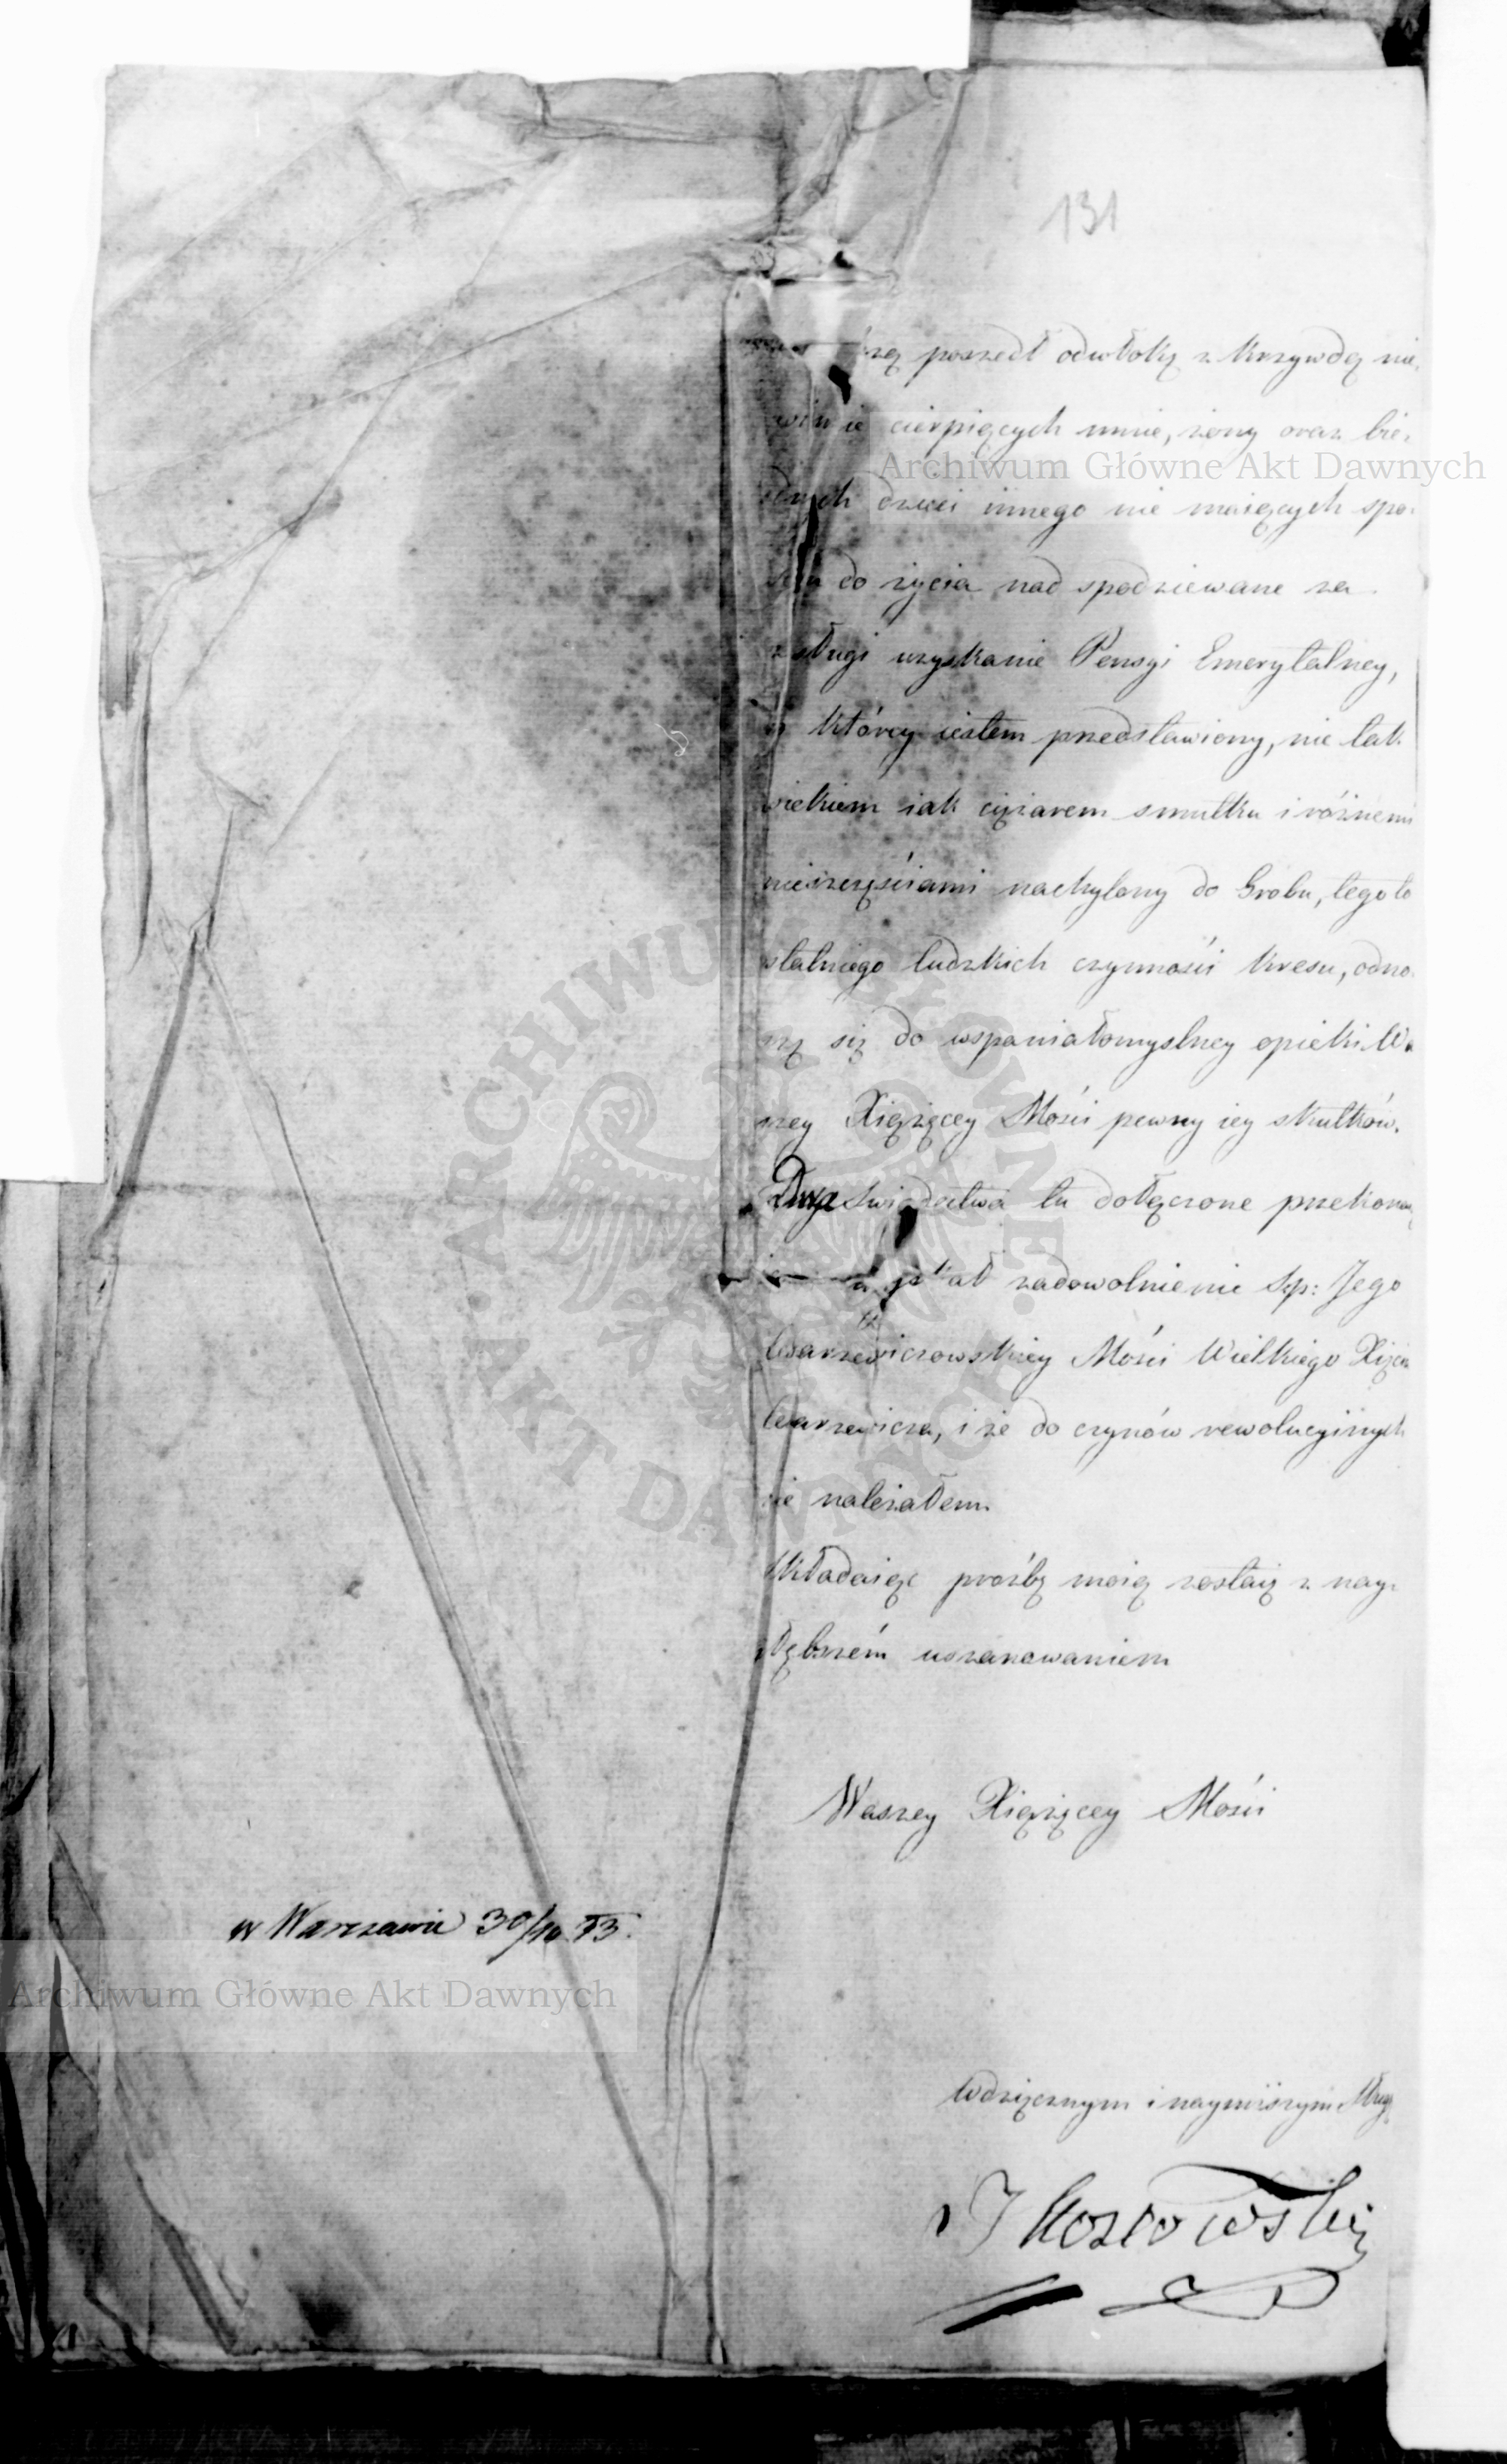 131
rzą poszedł odwłoką z krzywdą nie,
winnie cierpiących mnie, żony oraz bie,
dnych dzieci innego nie maiących spo,
do życia nad spodziewane za
zasługi uzyskanie Pensyi Emerytalney,
którey iestem przedstawiony, nie tak
wiekiem iak ciężarem smutku i różnemi
nieszczęściami nachylony do Grobu, tego to
statniego ludzkich czynności kresu, odno,
szę się do wspaniałomyslney opieki Wa
szey Xiążęcey Mości pewny iey skutków.
Dwa świadectwa tu dołączone przekona
zadowolnienie Sp: Jego
Cesarzewiczowskiey Mości Wielkiego Xięcia
Cesarzewicza, i że do czynów rewolucyinych
nie należałem.
Składaiąc prośbę moią zostaię z nay,
głębszém uszanowaniem
Waszey Xiążęcey Mości
w Warszawie 30/10
wdzięcznym i nayniższym Sługą
J Kozłowski
Archiwum Główne Akt Dawnych
Archiwum Główne Akt Dawnych
ARCHIWUM GŁÓWNE AKT DAWNYCH